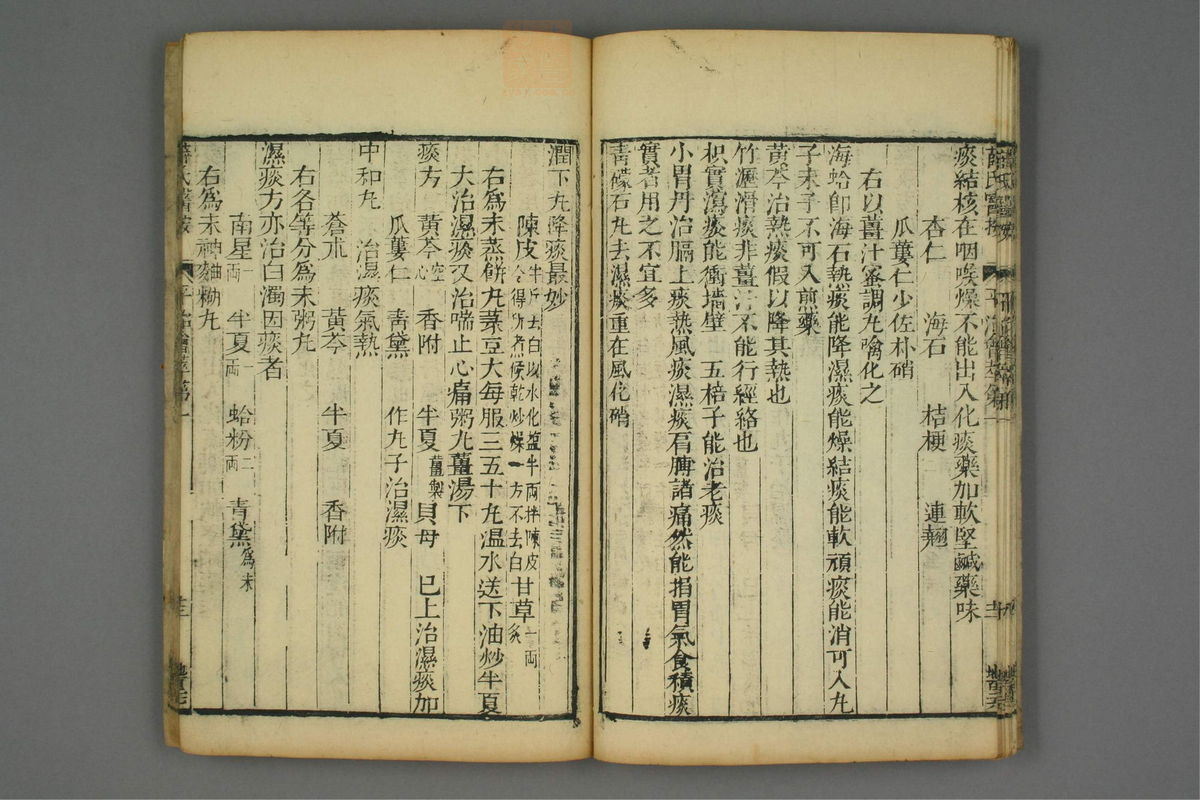 痰結核在咽喉燥不能出入化痰藥加軟堅鹹藥味
杏仁 海石 桔梗 連翹
瓜蔞仁少佐朴硝
右以薑汁蜜調丸噙化之
海蛤即海石熱痰能降濕痰能燥結痰能軟頑痰能消可入丸
子末子不可入煎藥
黃芩治熱痰假以降其熱也
竹瀝滑痰非薑汁不能行經絡也
枳實瀉痰能衝墻壁 五棓子能治老痰
小胃丹治膈上痰熱風痰濕痰肩膊諸痛然能損胃氣食積痰
實者用之不宜多
青礞石丸去濕痰重在風化硝
潤下丸降痰最妙
陳皮半斤去白以水化塩半兩拌陳皮
令得所煮候乾炒燥一方不去白 甘草一兩炙
右為末蒸餅丸菉豆大每服三五十丸溫水送下油炒半夏
大治濕痰又治喘止心痛粥丸薑湯下
痰方 黃芩空心 香附 半夏薑製 貝母 已上治濕痰加
瓜蔞仁 青黛 作丸子治濕痰
中和丸 治濕痰氣熱
蒼朮 黃芩 半夏 香附
右各等分為末粥丸
濕痰方亦治白濁因痰者
南星一兩 半夏一兩 蛤粉二兩 青黛為末
右為末神麯糊丸